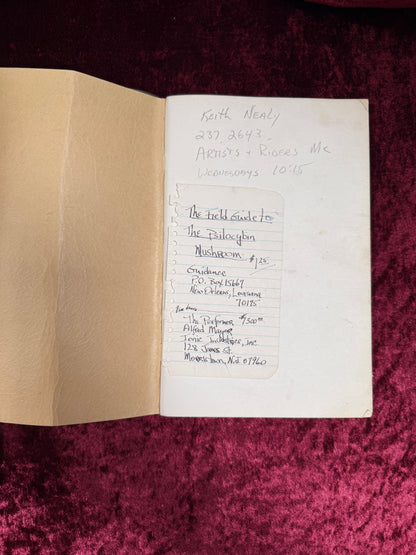 Keith Nealy
237.2643.
Artists + Riders Mc
Wednesdays 10:15
The Field Guide to
The Psilocybin
Mushroom $1.25
Guidance
P.O. Box 15667
New Orleans, Louisiana
70175
The Performer $7500
Alfred
Ionic Industries, Inc
128 James St.
Morristown, N.J. 07960